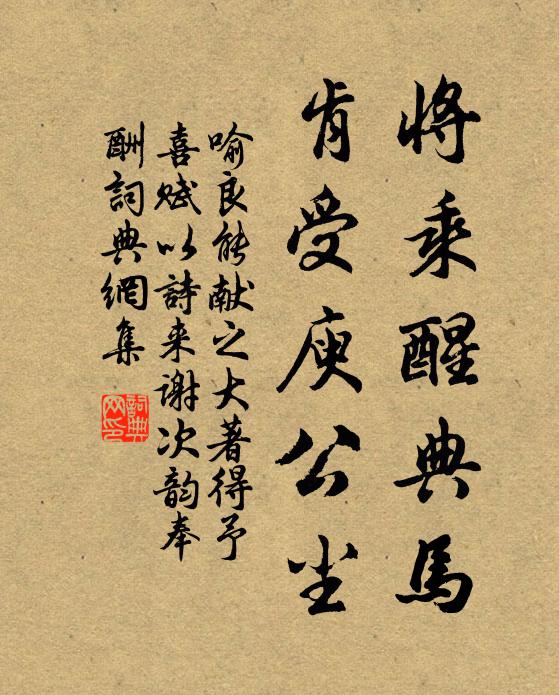 將乘醒典馬
肯受庾公尘
喻良能献之大著得予
喜赋以詩来谢次韵奉
酬詞典網集
詞典网印